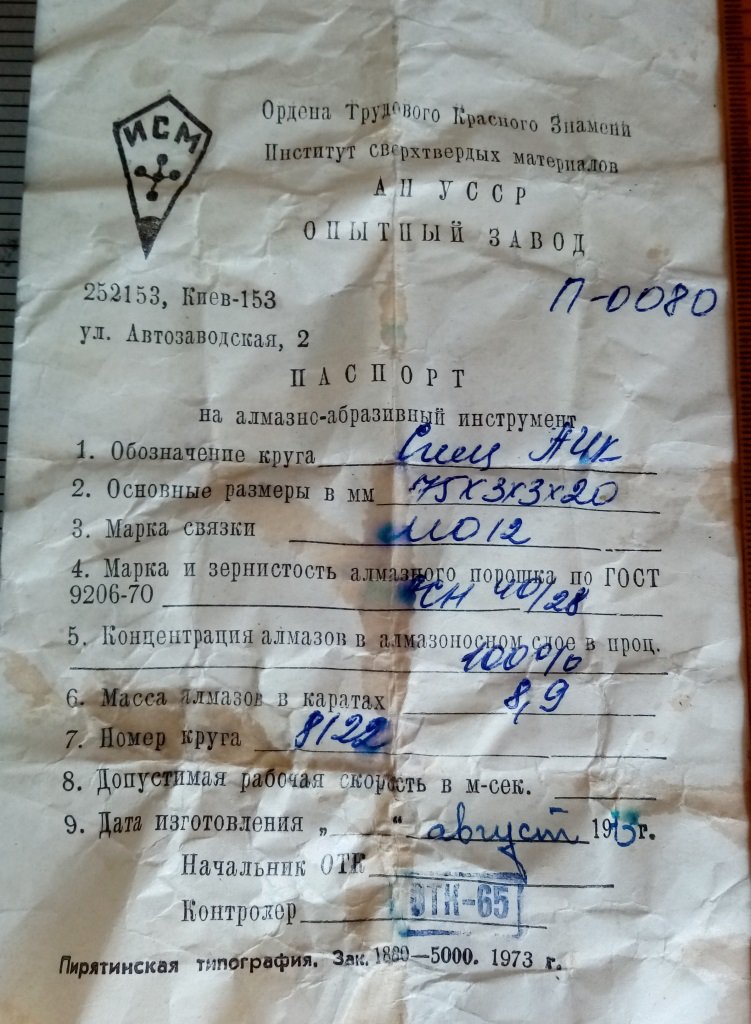 ИСМ
Ордена Трудового Красного Знамени
Институт сверхтвердых материалов
АН УССР
ОПЫТНЫЙ ЗАВОД
252153, Киев-153
П-0080
ул. Автозаводская, 2
ПАСПОРТ
на алмазно-абразивный инструмент
1. Обозначение круга Спец АЧК
2. Основные размеры в мм 75х3х3х20
3. Марка связки МО12
4. Марка и зернистость алмазного порошка по ГОСТ
9206-70 АСН 40/28
5. Концентрация алмазов в алмазоносном слое в проц.
100%
6. Масса алмазов в каратах 8,9
7. Номер круга 8122
8. Допустимая рабочая скорость в м-сек.
9. Дата изготовления „ “ август 19 г.
Начальник ОТК
Контролер ОТК-65
Пирятинская типография. Зак. 1860—5000. 1973 г.